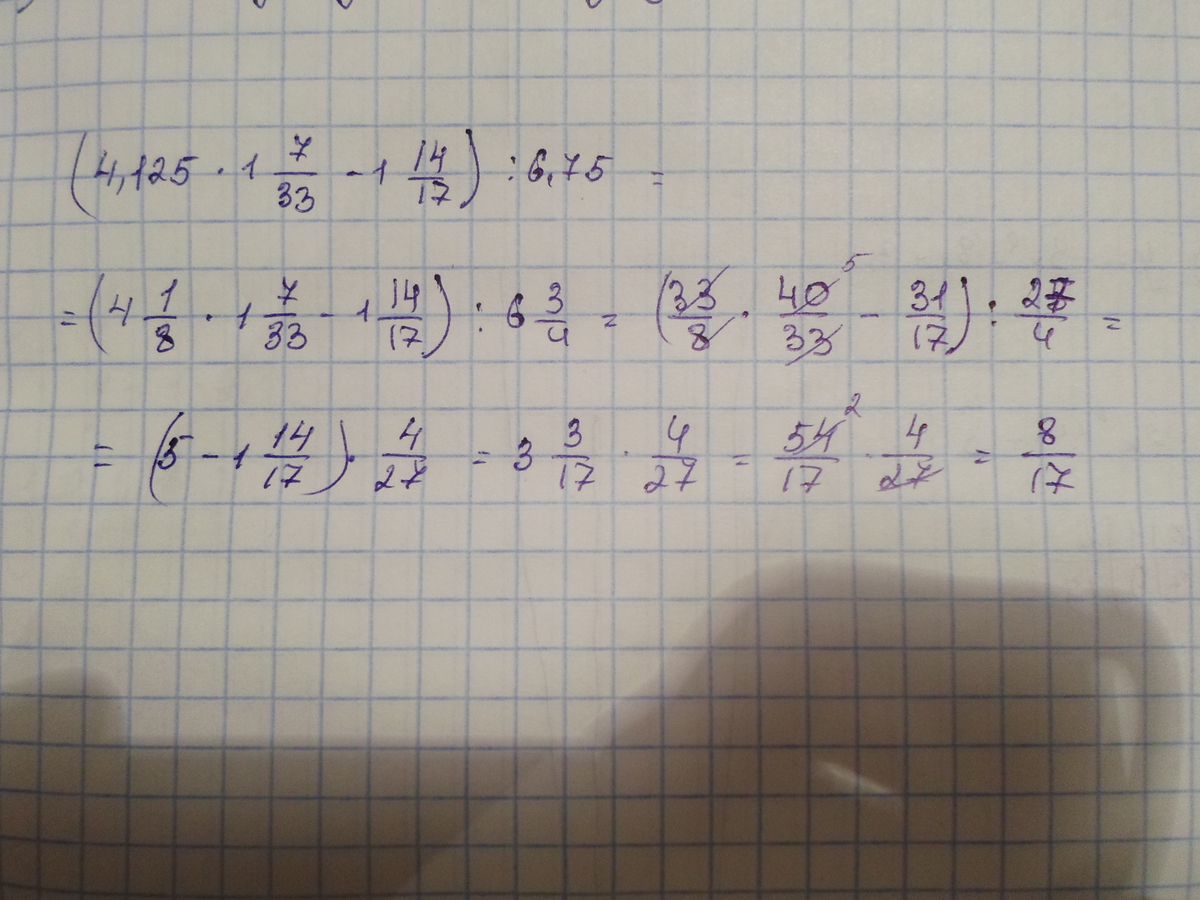 (4,125 · 1 7/33 - 1 14/17) : 6,75 =
= (4 1/8 · 1 7/33 - 1 14/17) : 6 3/4 = (33/8 · 40/33 - 31/17) : 27/4 = 5
= (5 - 1 14/17) · 4/27 = 3 3/17 · 4/27 = 54/17 · 4/27 = 8/17 2